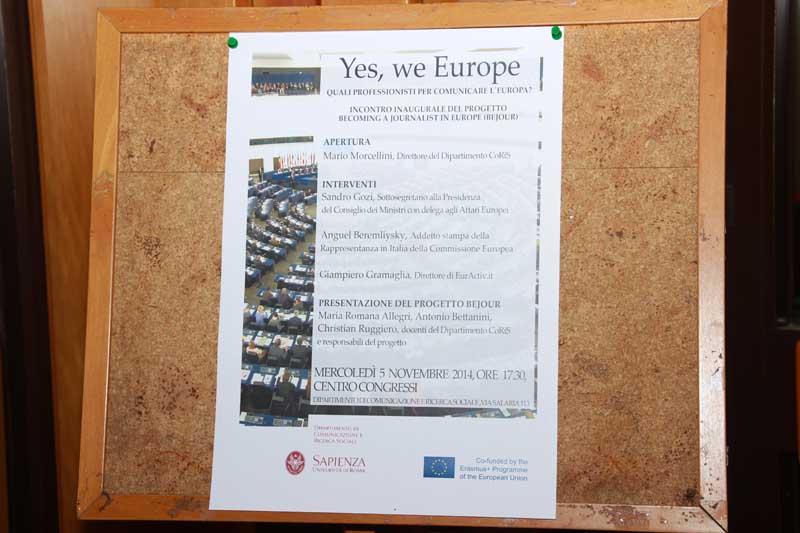 Yes, we Europe
QUALI PROFESSIONISTI PER COMUNICARE L'EUROPA?
INCONTRO INAUGURALE DEL PROGETTO
BECOMING A JOURNALIST IN EUROPE (BEJOUR)
APERTURA
Mario Morcellini, Direttore del Dipartimento CoRiS
INTERVENTI
Sandro Gozi, Sottosegretario alla Presidenza
del Consiglio dei Ministri con delega agli Affari Europei
Anguel Beremliysky, Addetto stampa della
Rappresentanza in Italia della Commissione Europea
Giampiero Gramaglia, Direttore di EurActiv.it
PRESENTAZIONE DEL PROGETTO BEJOUR
Maria Romana Allegri, Antonio Bettanini,
Christian Ruggiero, docenti del Dipartimento CoRiS
e responsabili del progetto
MERCOLEDÌ 5 NOVEMBRE 2014, ORE 17.30,
CENTRO CONGRESSI
DIPARTIMENTO DI COMUNICAZIONE E RICERCA SOCIALE, VIA SALARIA 113
DIPARTIMENTO DI
COMUNICAZIONE E
RICERCA SOCIALE
SAPIENZA
UNIVERSITÀ DI ROMA
Co-funded by the
Erasmus+ Programme
of the European Union